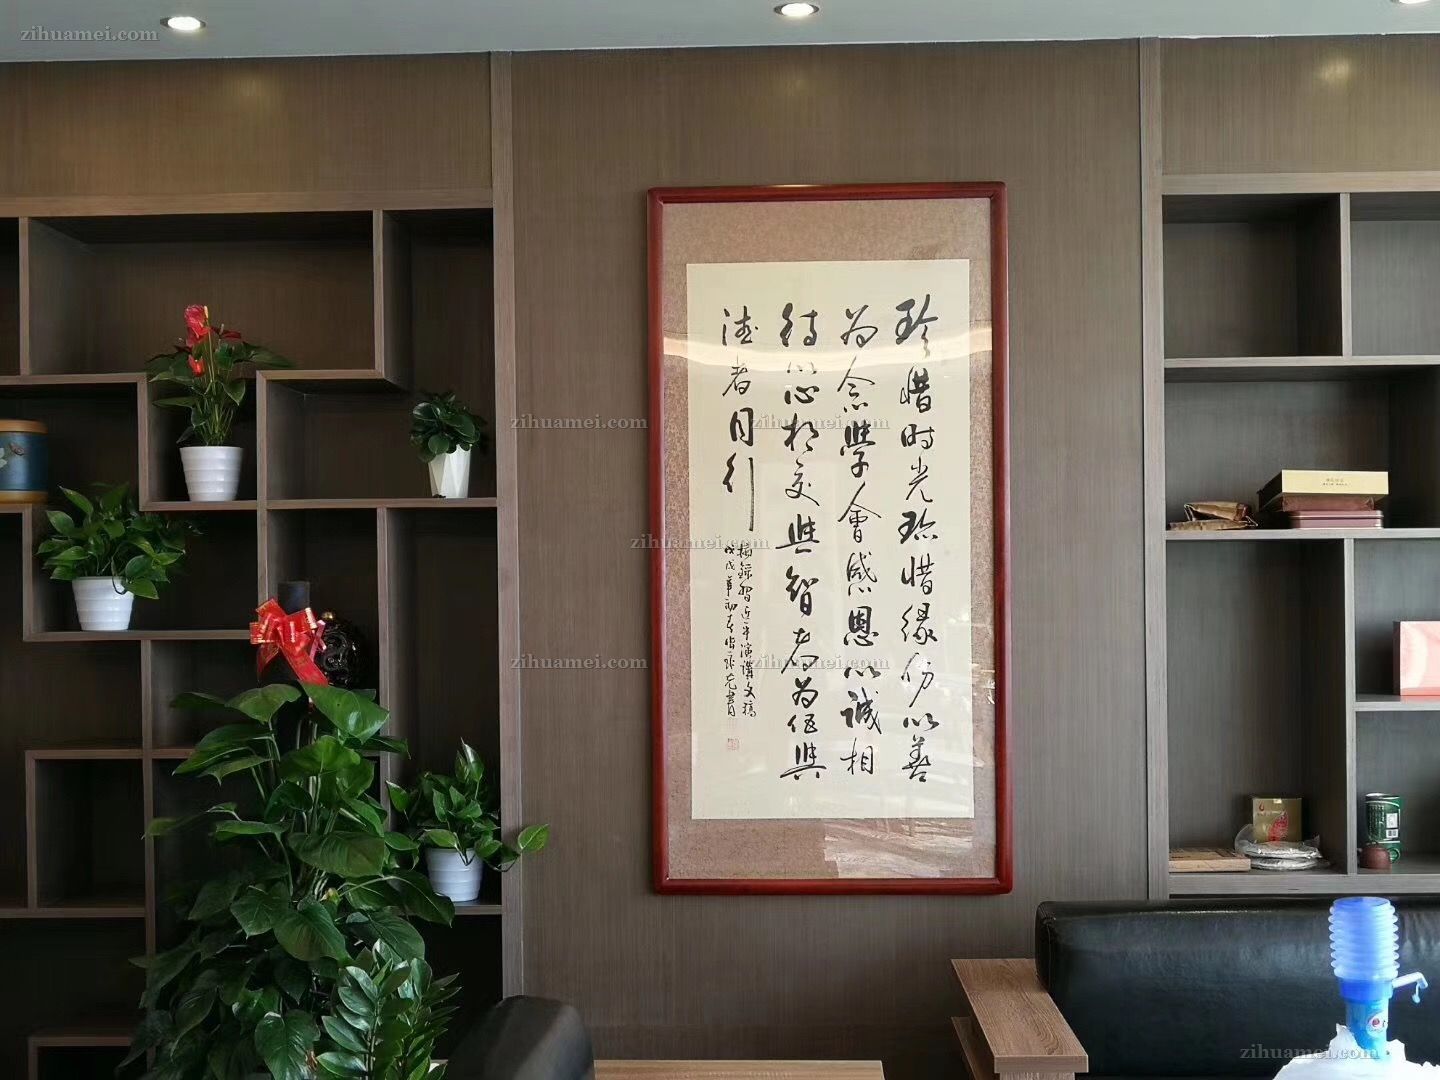 zihuamei.com
珍惜时光珍惜缘份以善
为念學會感恩以诚相
待以心相交與智者为伍與
德者同行
摘錄習近平演講文稿
zihuamei.com
zihuamei.com
zihuamei.com
zihuamei.com
zihuamei.com
zihuamei.com